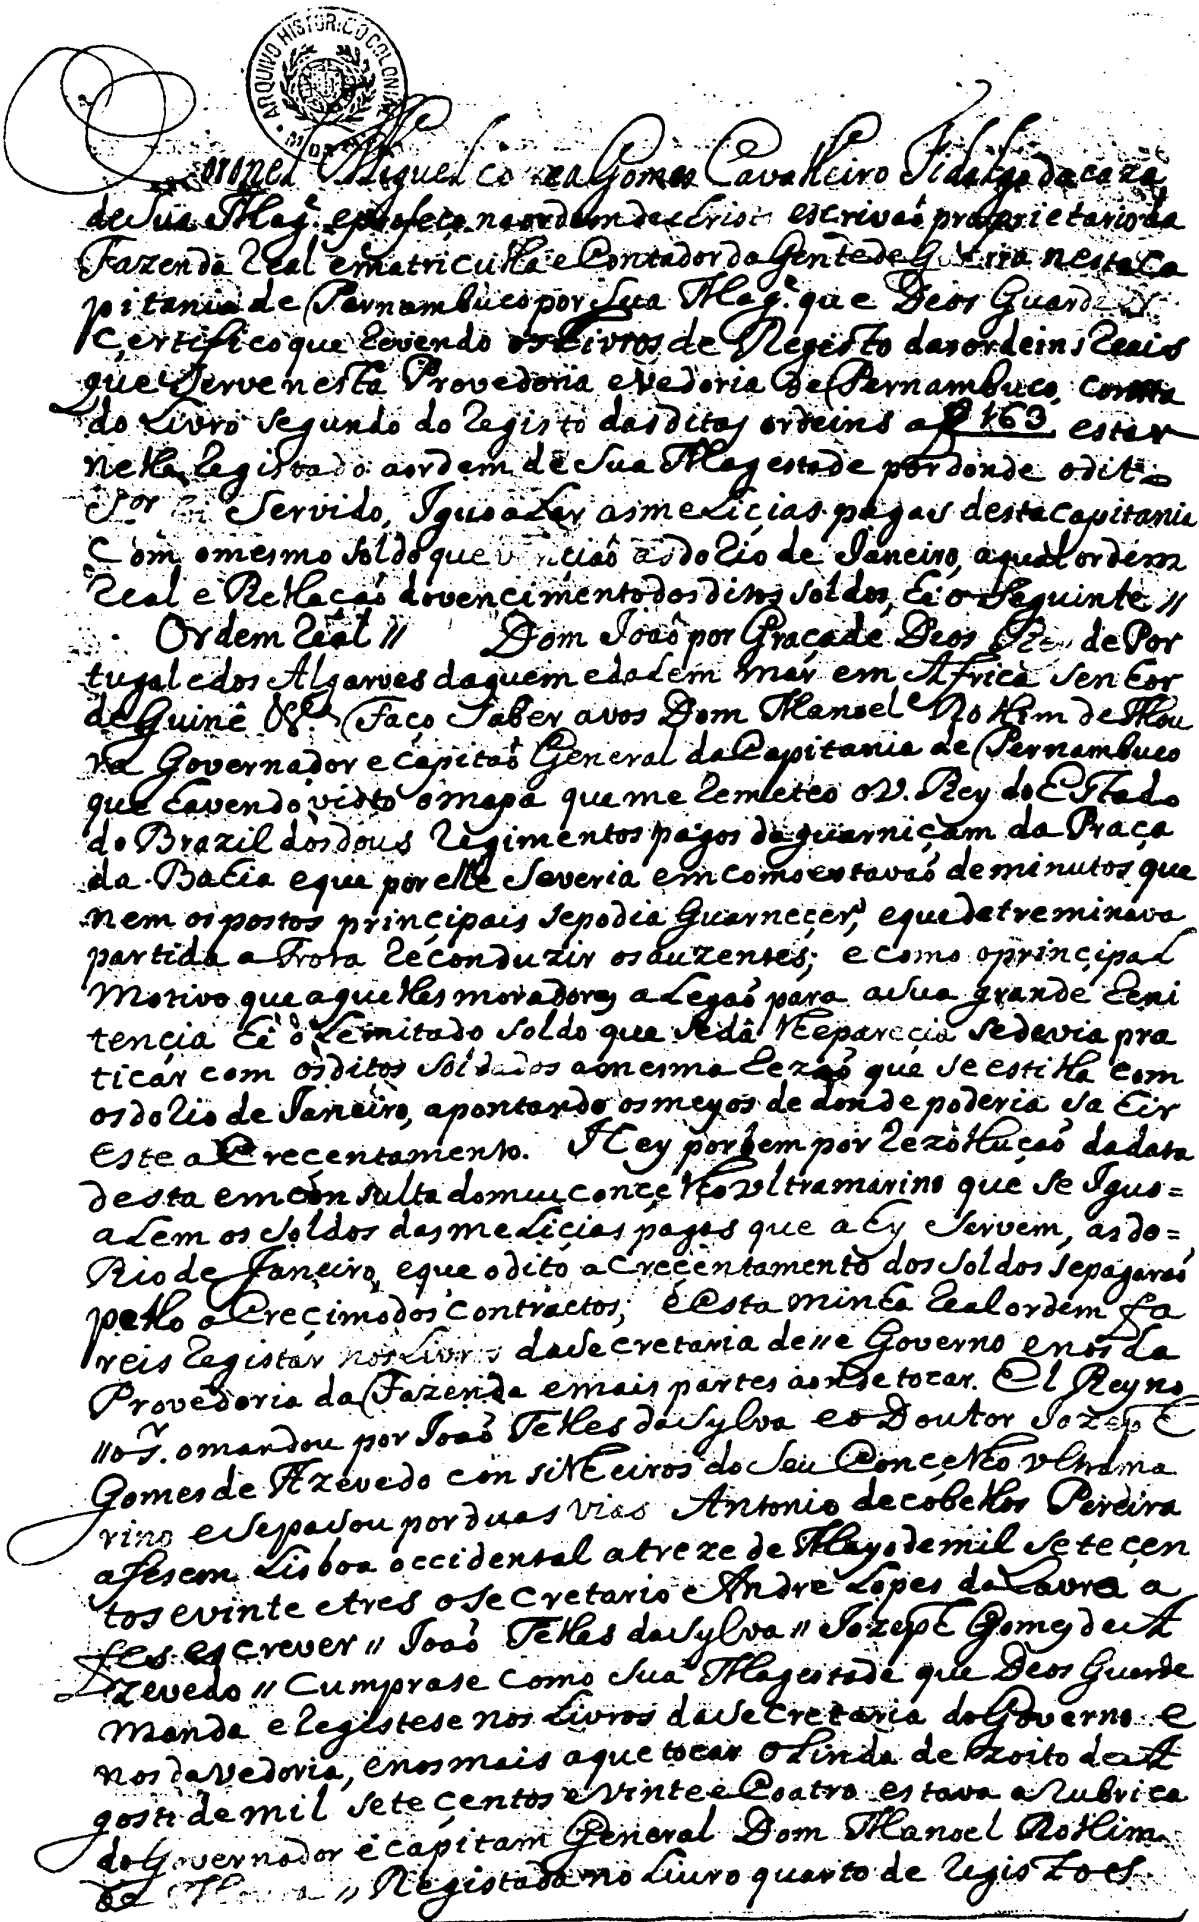 ARQUIVO HISTORICO COLONIAL
Coronel Miguel Correa Gomes Cavalleiro Fidalgo da caza
de Sua Mag.e e profeço na ordem de christo escrivaõ proprietario da
Fazenda Real e matriculla e Contador da Gente de Guerra nesta Ca
pitania de Pernambuco por Sua Mag.e que Deos Guarde
Certifico que Revendo os Livros de Regesto das ordeins Reais
que Serve nesta Provedoria e Vedoria de Pernambuco, consta
do Livro segundo do Registo das ditas ordeins a f 163 estar
nelle Registado a ordem de Sua Magestade por donde o dito
S.or foi Servido, Iguoalar as meLiçias pagas desta Capitania
Com o mesmo soldo que vençiaõ as do Rio de Janeiro, a qual ordem
Real e Rellaçaõ do vencimento dos ditos soldos, hé o Seguinte //
Ordem Real // Dom Joaõ por Graça de Deos Rey de Por
tugal e dos Algarves daquem e dalem mar em Africa senhor
de Guiné &.a Faço Saber a vos Dom Manoel Rollim de Mou
ra Governador e Capitaõ General da Capitania de Pernambuco
que havendo visto o mapa que me Remeteo o V. Rey do Estado
do Brazil dos dous Regimentos pagos da guarniçam da Praça
da Bahia e que por elle Severia em como estavaõ deminutos que
nem os postos prinçipais se podia Guarneçer, e que detreminava
partida a Frota Reconduzir os auzentes; e como o prinçipal
Motivo que aquelles moradores alegaõ para a sua grande Reni
tençia hé o Lemitado soldo que se dá lhe pareçia se devia pra
ticar com os ditos soldados a mesma Rezaõ que se estilla com
os do Rio de Janeiro, apontando os meyos de donde poderia sahir
Este aCreçentamento. Hey por bem por Rezolluçaõ da data
desta em consulta do meu conçelho Ultramarino que se Iguo=
alem os soldos das meLiçias pagas que ahy servem, as do=
Rio de Janeiro, e que o dito aCreçentamento dos soldos se pagaraõ
pello aCreçimo dos contractos; e Esta minha Real ordem fa
reis Registar nos Livros da Secretaria desse Governo e nos da
Provedoria da Fazenda e mais partes aonde tocar. El Rey no
sso s.r o mandou por Joaõ Telles da Sylva e o Doutor Jozeph
Gomes de Azevedo consilheiros do seu Conçelho Ultrama
rino e se pasou por duas vias Antonio de cobellos Pereira
a fes em Lisboa occidental a treze de Mayo de mil seteçen
tos e vinte e tres o secretario Andre Lopes da Lavra a
fes escrever // Joaõ Telles da Sylva // Jozeph Gomes de A
zevedo // Cumprase como Sua Magestade que Deos Guarde
Manda e Registese nos Livros da Secretaria do Governo e
nos da Vedoria, e nos mais a que tocar Olinda dezoito de A
gosto de mil seteçentos e vinte e Coatro estava a Rubrica
do Governador e Capitam General Dom Manoel Rollim
de Moura // Registada no Livro quarto de Registoes